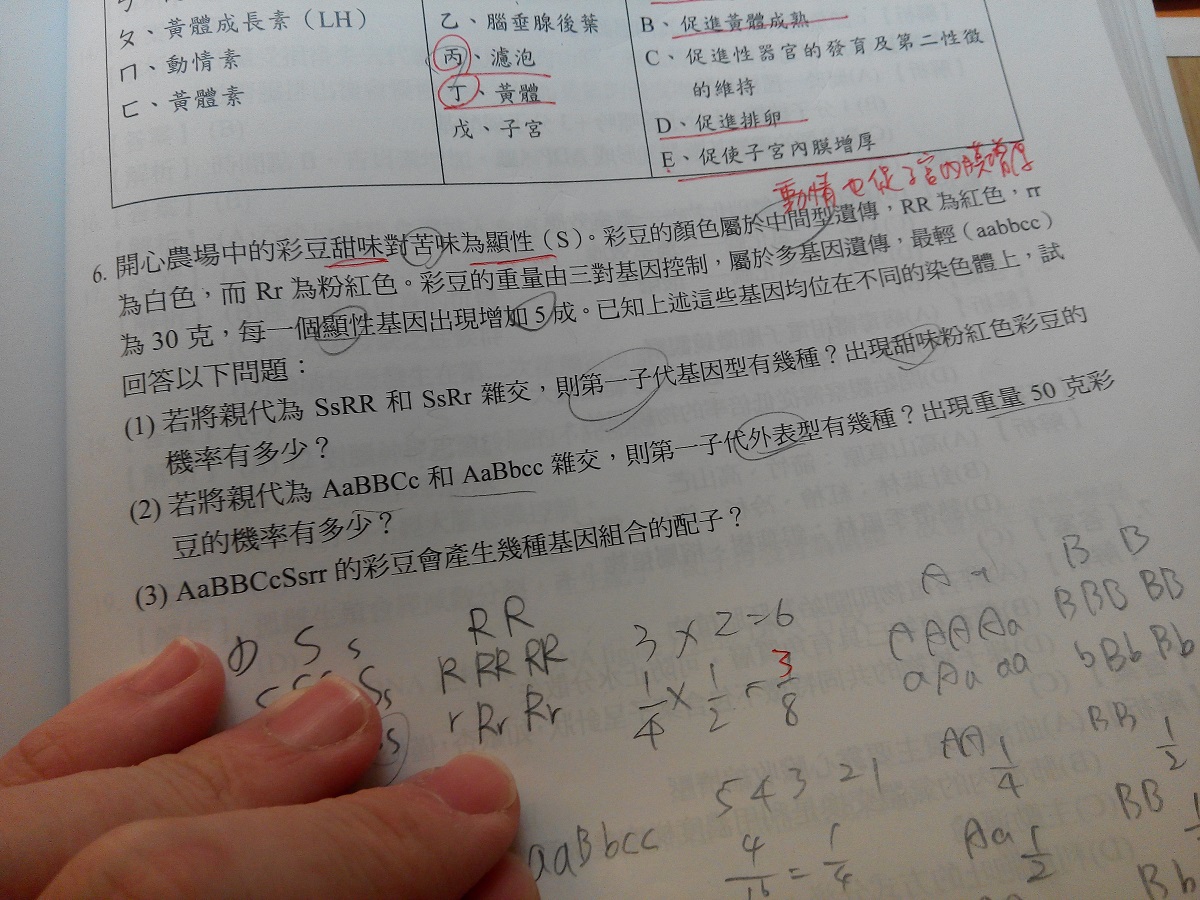 ㄆ、黃體成長素（LH）
ㄇ、動情素
ㄈ、黃體素
乙、腦垂腺後葉
丙、濾泡
丁、黃體
戊、子宮
B、促進黃體成熟
C、促進性器官的發育及第二性徵
的維持
D、促進排卵
E、促使子宮內膜增厚
動情也促子宮內膜增厚
6. 開心農場中的彩豆甜味對苦味為顯性（S）。彩豆的顏色屬於中間型遺傳，RR 為紅色，rr
為白色，而 Rr 為粉紅色。彩豆的重量由三對基因控制，屬於多基因遺傳，最輕（aabbcc）
為 30 克，每一個顯性基因出現增加 5 成。已知上述這些基因均位在不同的染色體上，試
回答以下問題：
(1) 若將親代為 SsRR 和 SsRr 雜交，則第一子代基因型有幾種？出現甜味粉紅色彩豆的
機率有多少？
(2) 若將親代為 AaBBCc 和 AaBbcc 雜交，則第一子代外表型有幾種？出現重量 50 克彩
豆的機率有多少？
(3) AaBBCcSsrr 的彩豆會產生幾種基因組合的配子？
S s
R R
R RR RR
r Rr Rr
3 × 2 = 6
1/4 × 1/2 = 3/8
A
A AA Aa
a Aa aa
B B
B BB BB
b Bb Bb
5 4 3 2 1
4/16 = 1/4
aaBbcc
AA 1/4
Aa 1/2
BB 1/2
BB
Bb